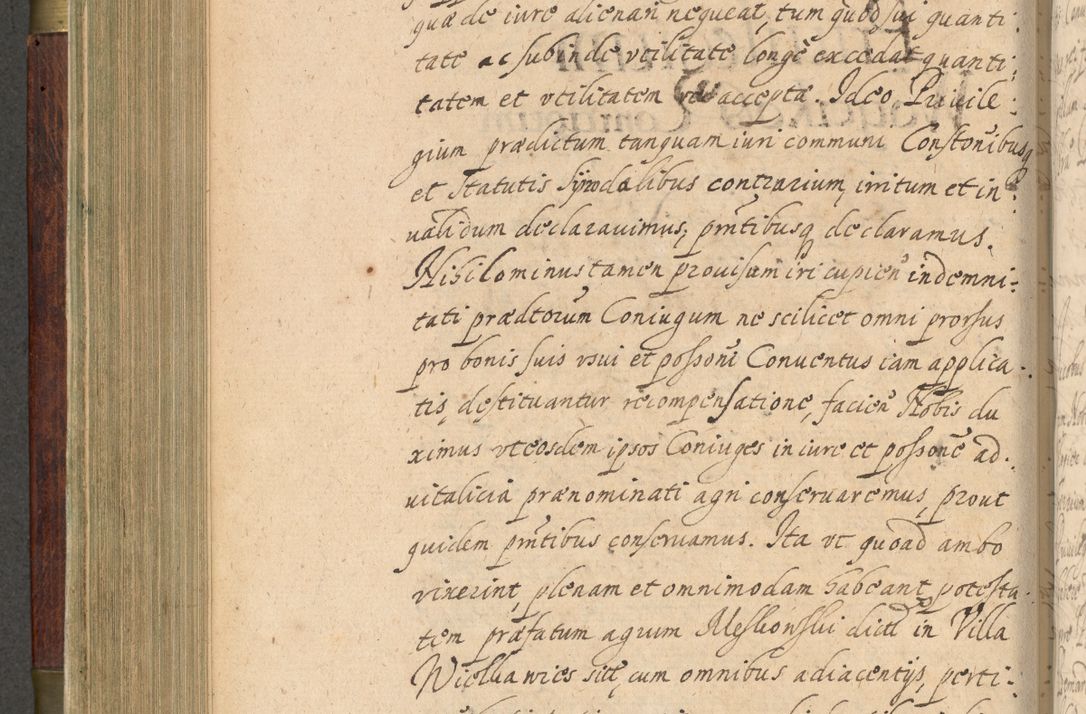 quæ de iure alienari nequeat, tum quod sui quanti:
tate ac subinde vtilitate longè excedat quanti:
tatem et vtilitatem accepta. Ideo Priuile:
gium prædictum tanquam iuri communi Constōnibusq
et Statutis Synodalibus contrarium, irritum et in:
ualidum declarauimus, pn̄tibusq declaramus.
Nihilominus tamen prouisum iri cupien̄ indemni:
tati prædtorum Coniugum ne scilicet omni prorsus
pro bonis suis vsui et possōni Conuentus iam applica:
tis, destituantur recompensatione, facien̄ Nobis du
ximus vt eosdem ipsos Coniuges in iure et possonē ad:
uitalicia prænominati agri conseruaremus, prout
quidem pn̄tibus conseruamus. Ita vt quoad ambo
vixerint, plenam et omnimodam habeant potesta:
tem præfatum agrum Meskowski dictū in Villa
Wielka wies site, cum omnibus adiacentijs, perti: